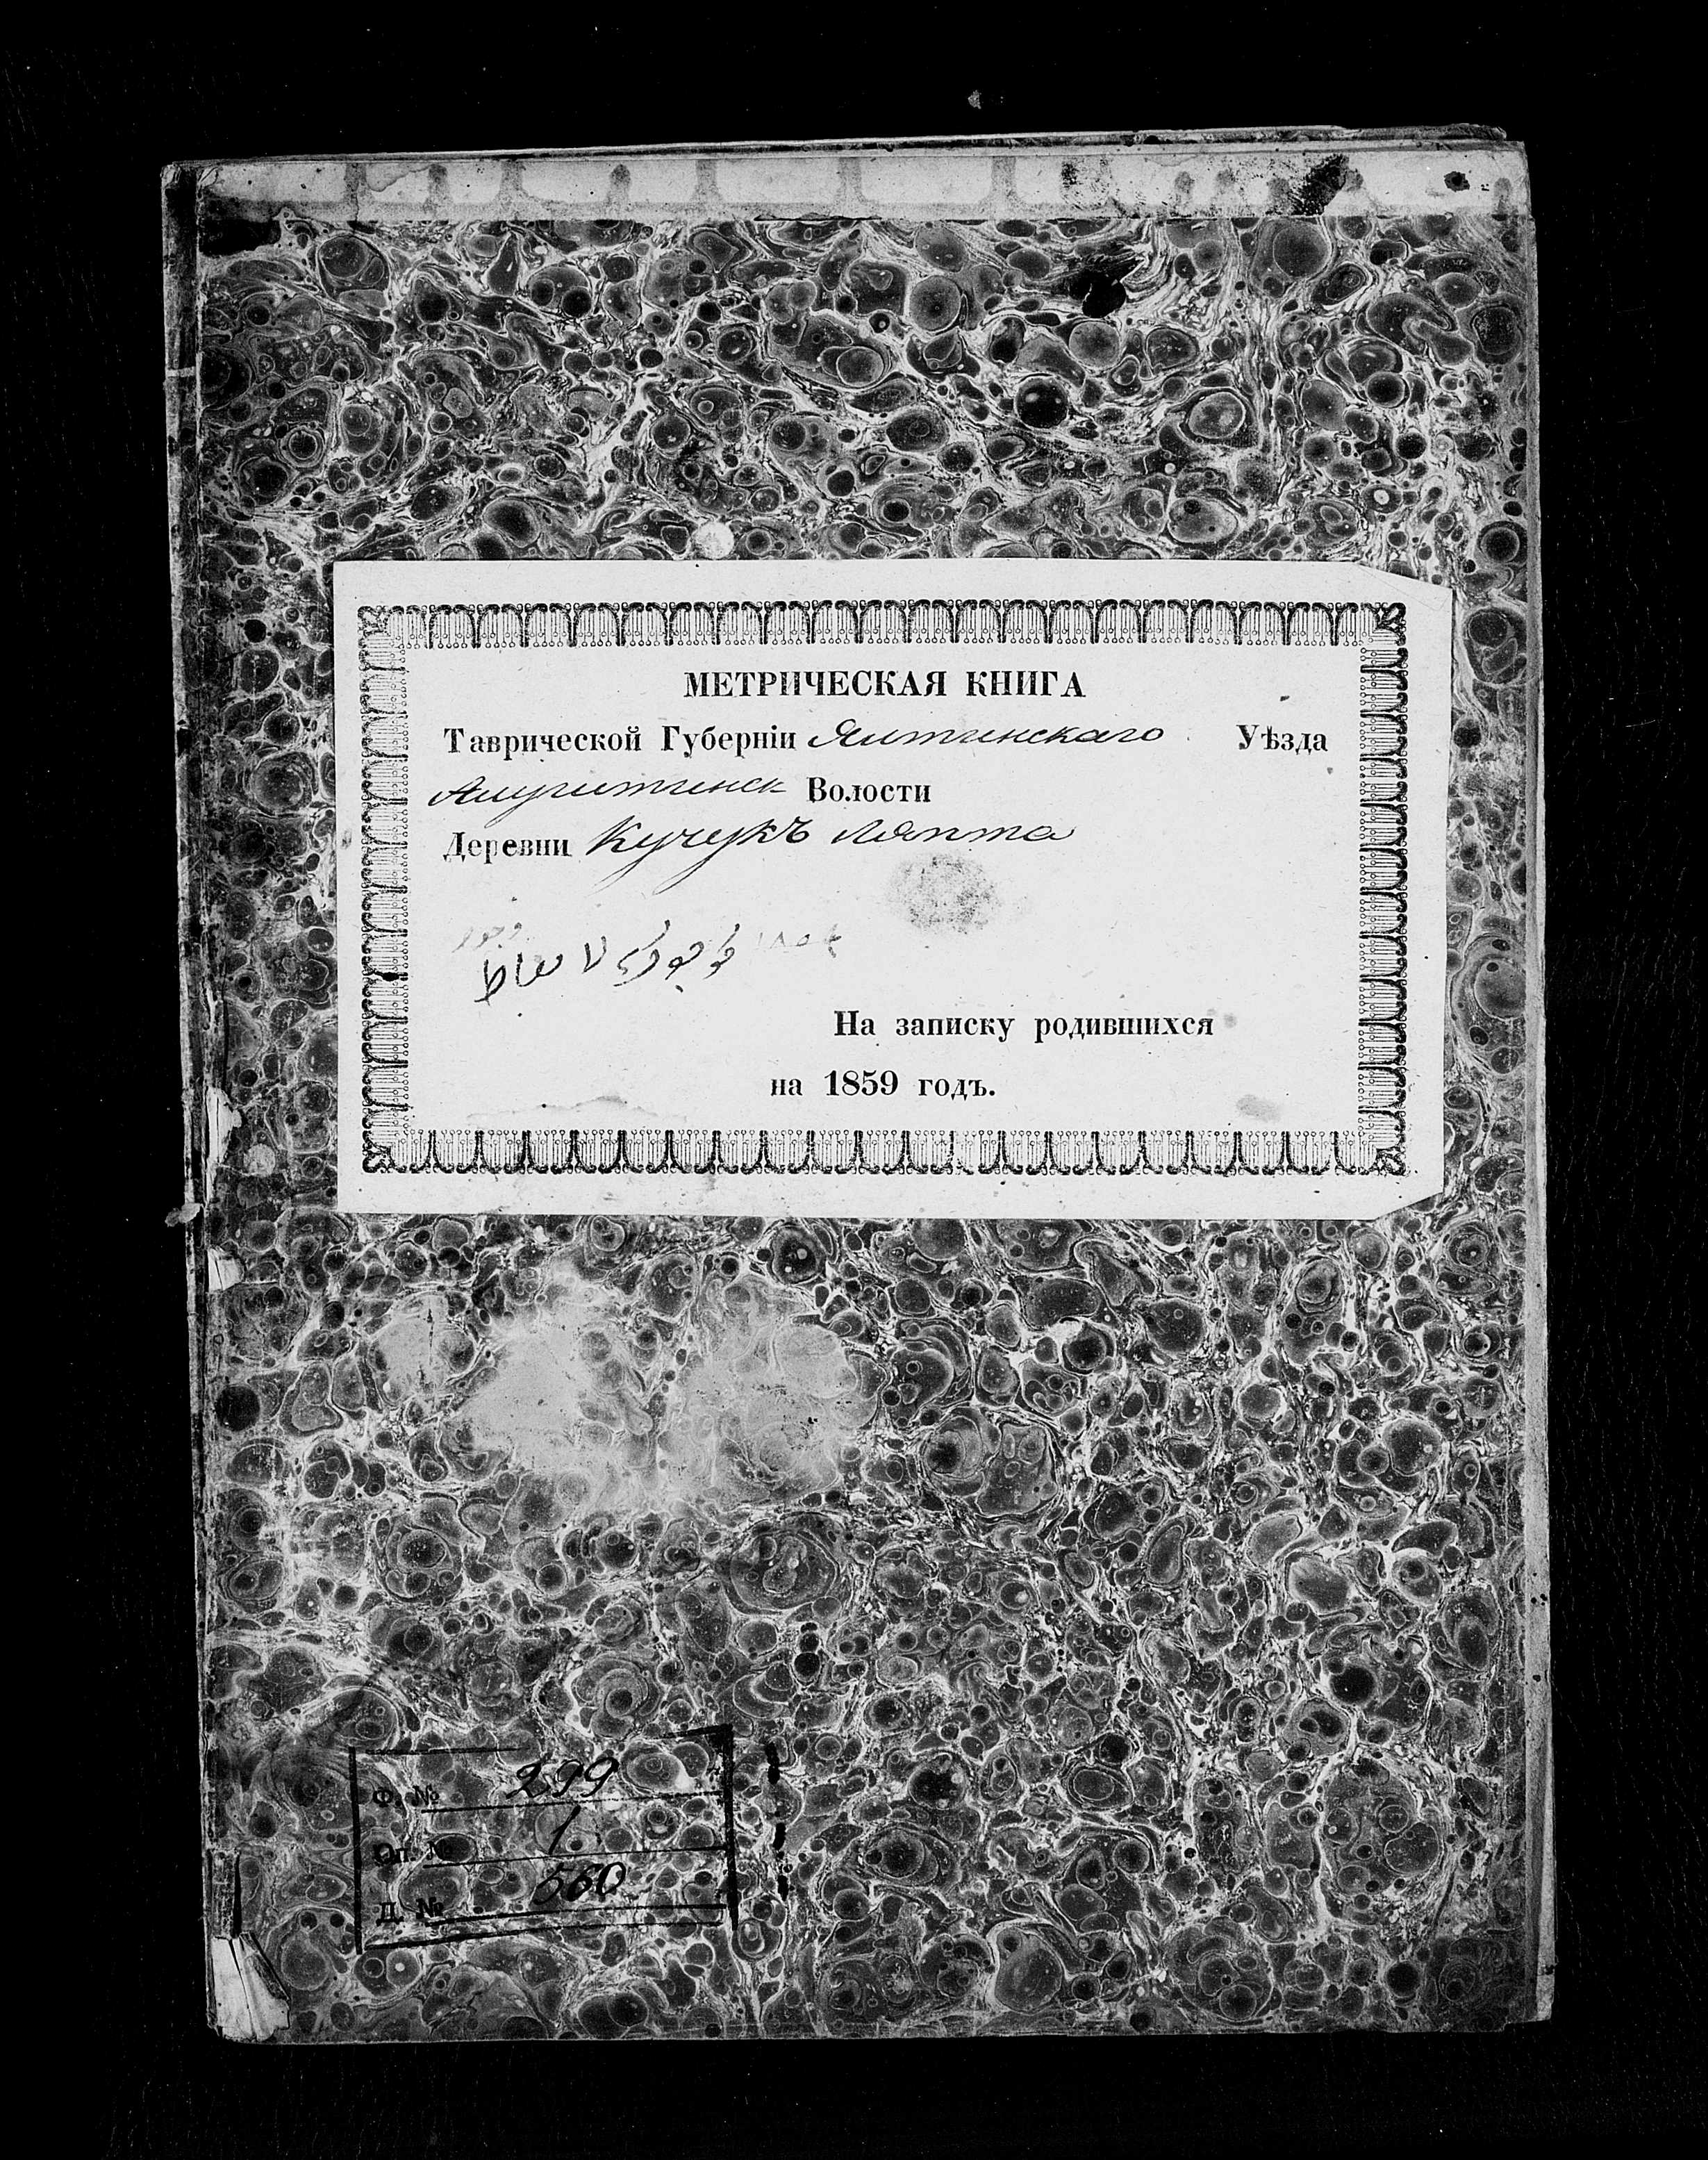 МЕТРИЧЕСКАЯ КНИГА
Таврической Губерніи Ялтинскаго Уѣзда
Алуштинск Волости
Деревни Кучукъ Ляпта
На записку родившихся
на 1859 годъ.
Ф. № 299
Оп. № 1
Д. № 560